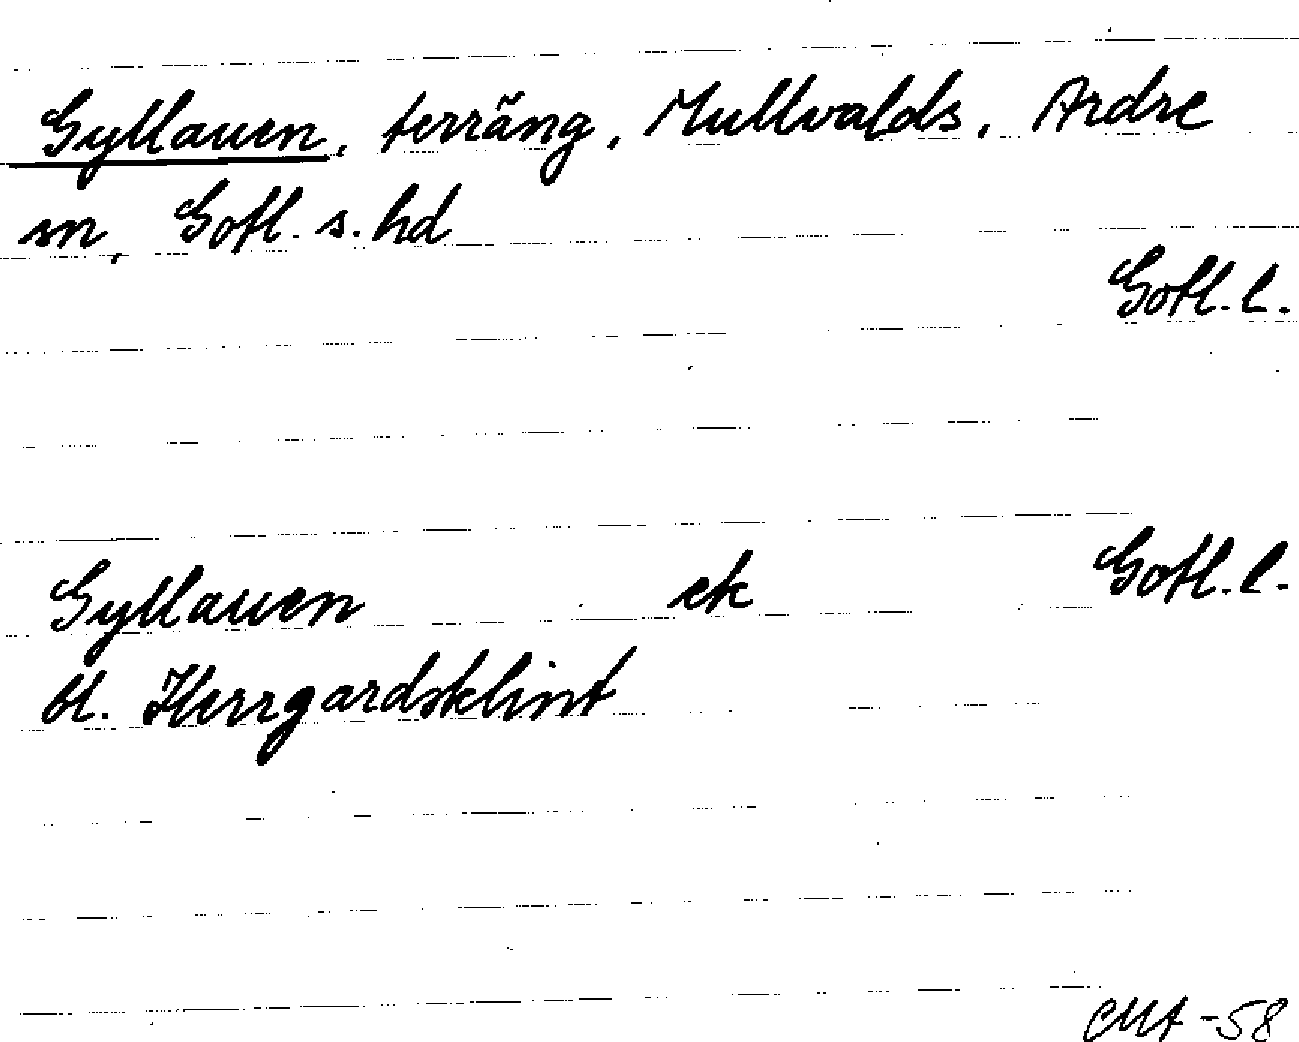 Gyllauen, terräng, Mullvalds, Ardre
sn, Gotl. s. hd
Gotl. l.
Gyllauen ek Gotl. l.
U. Herrgardsklint
CMA -58